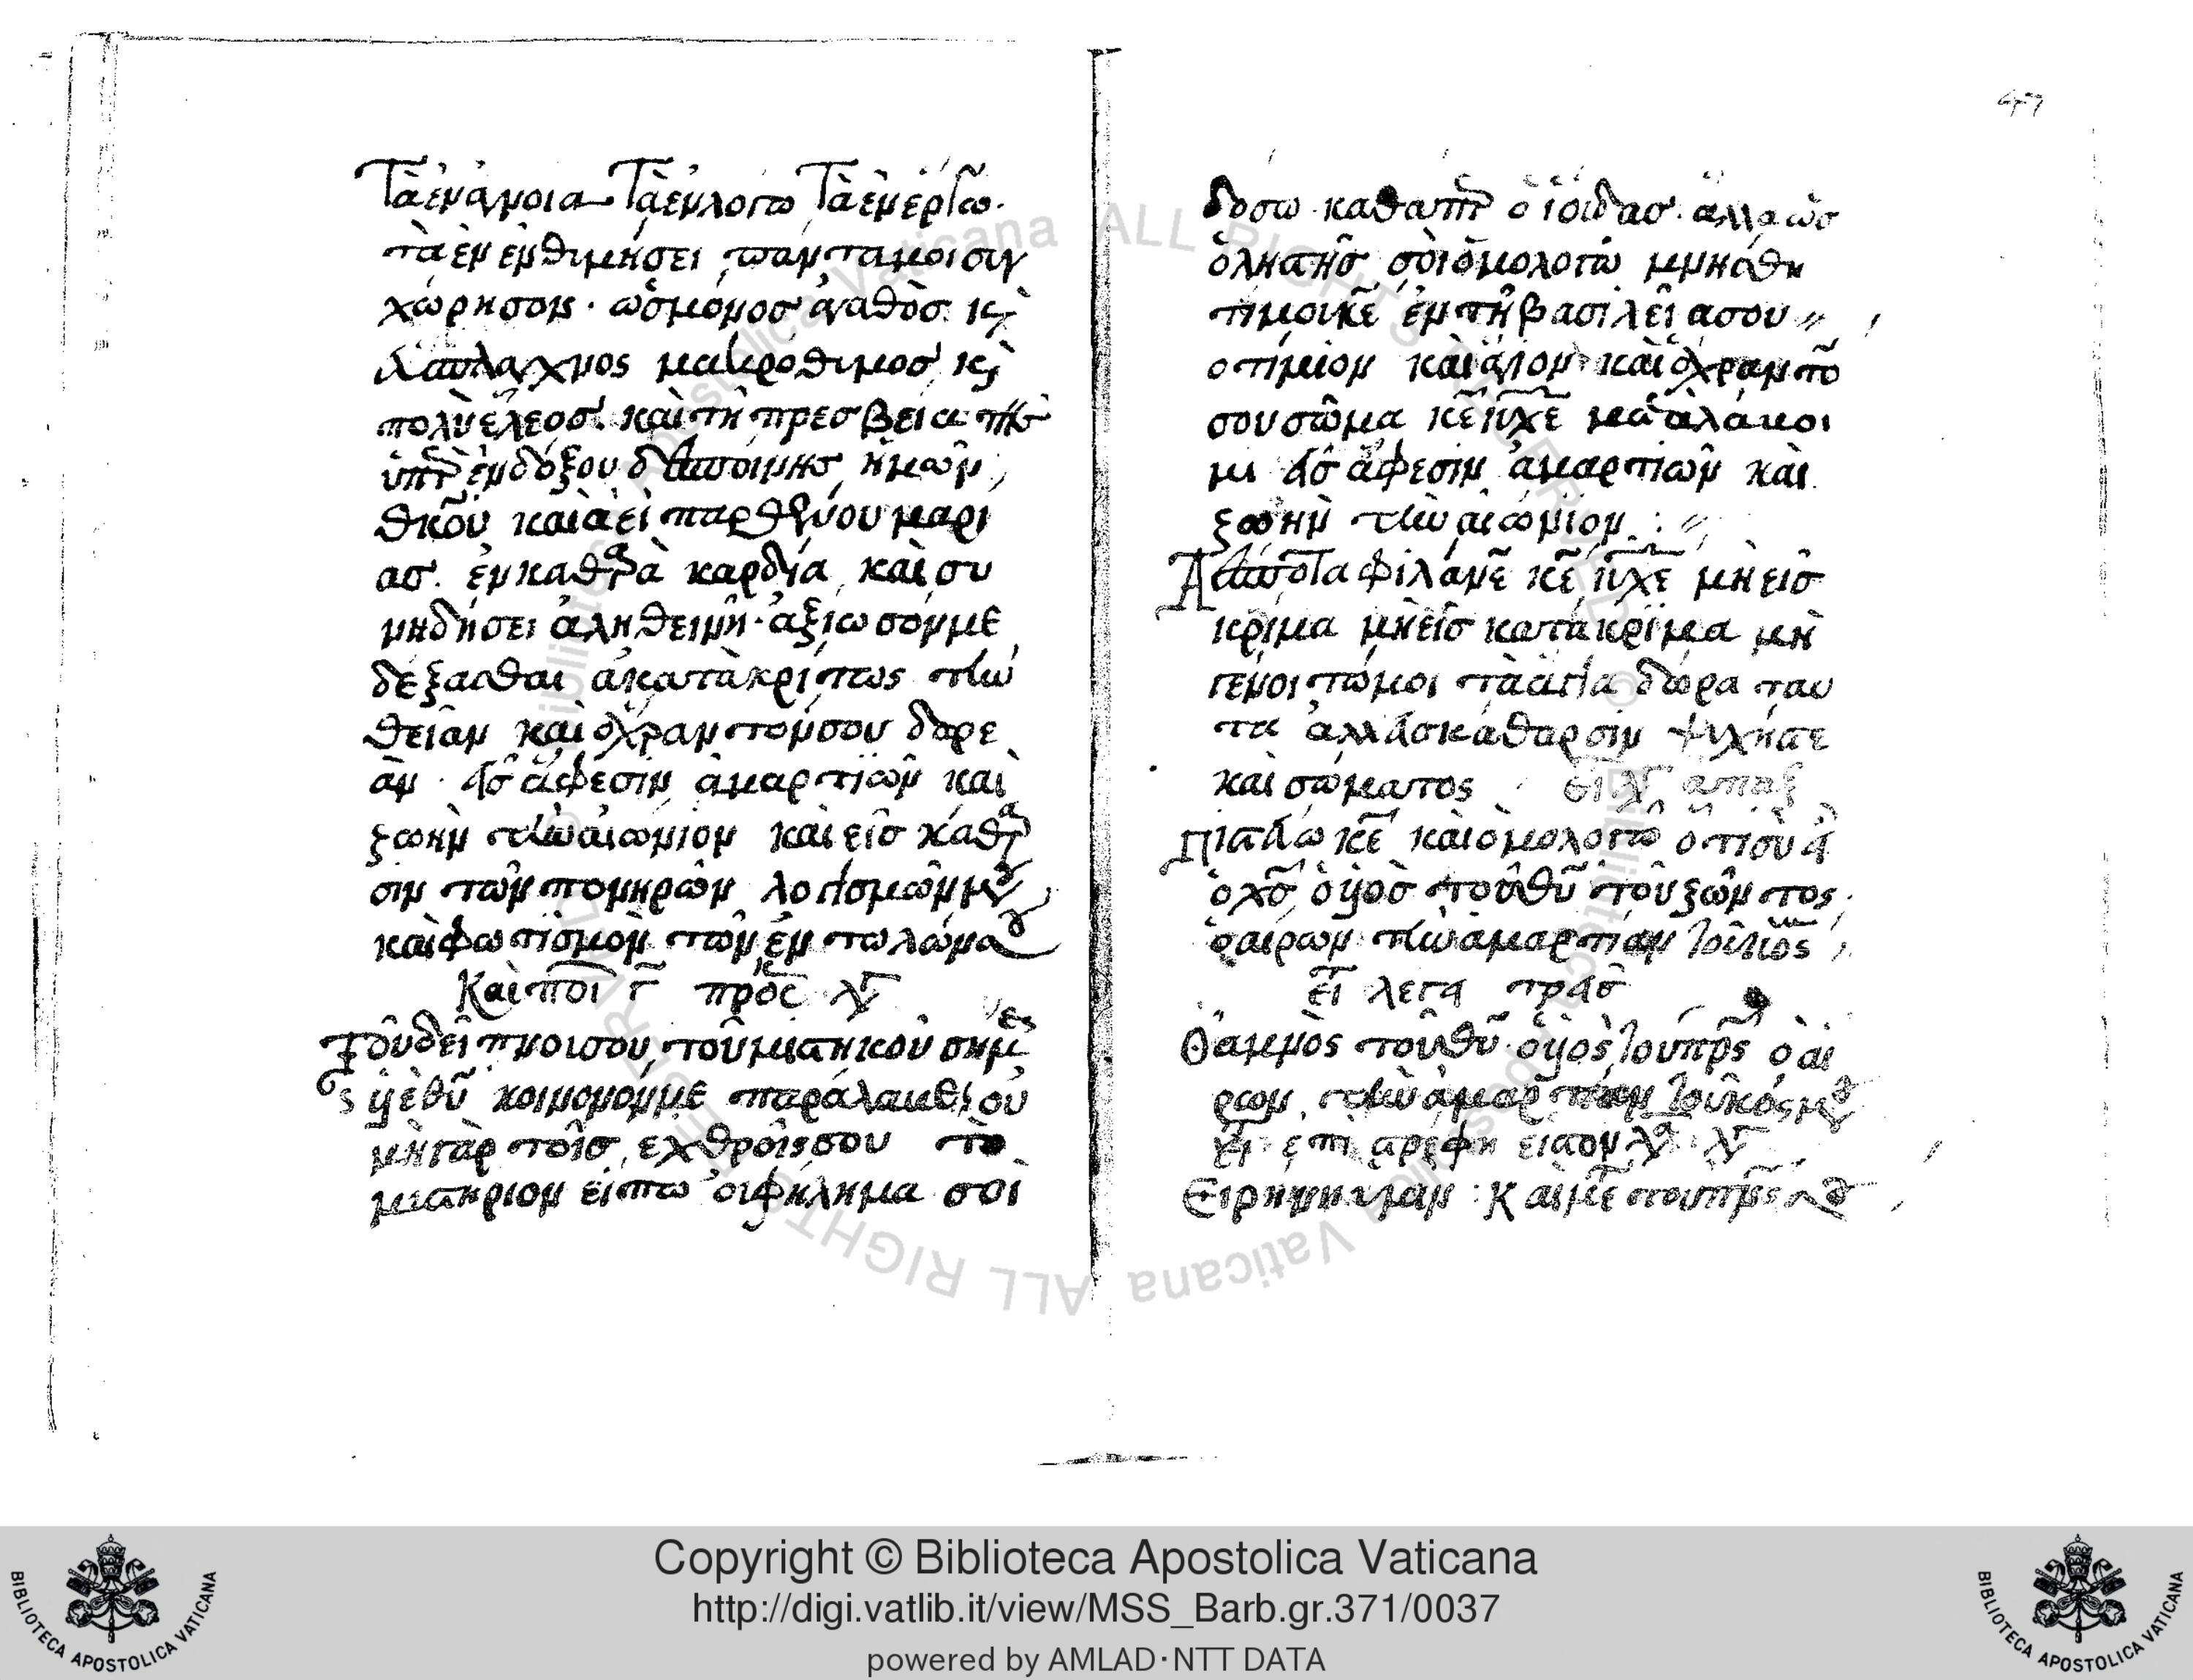 Τὰ ἐν ἀγνοία Τὰ ἐν λόγω Τὰ ἐν ἔργω.
τὰ ἐν ἐνθιμήσει παντα μοι συγ
χώρησον · ὡς μόνος ἀγαθὸς κὶ
μακρόθιμος κὶ
πολὺέλεος καὶ τῆ πρεσβεία τῆς
ὑπὲρ ἐνδόξου δεσποίνης ἡμῶν
θκου καὶ ἀεὶ παρθένου μαρι
ας. ἐν καθαρὰ καρδία καὶ συ
νηδήσει ἀληθεινῆ · ἀξιωσόν με
δέξασθαι ἀκατὰκρίτως τὴν
θείαν καὶ ἀχραντόν σου δορε
ὰν · εἰς ἄφεσιν ἁμαρτιῶν καὶ
ζωὴν τὴν αἰώνιον καὶ εἰς καθαρ
σιν τῶν πονηρῶν λογισμῶν μου
καὶ φωτισμὸν τῶν ἐν
Καὶ
Τοῦ δείπνοι σου τοῦ μιστικοῦ σήμ
ες υἱὲ θῦ κοινονόν με παράλαυε οὐ
μὴ γὰρ τοῖς ἐχθροῖς σου τὸ
μιστήριον είπω οὐ φήλημα σοι
47
δοσω καθαπερ ὁ ἰούδας. ἀλλα ὡς
ὁ λησατὴς σὸι ὁμολογῶ μνήσθη
τι μοι κε ἐν τῆ βασιλεία σου
ο τίμιον καὶ ἅγιον καὶ ἀχραντο
σου σῶμα κε ιυ χε
μι εἰς ἄφεσιν ἁμαρτιῶν καὶ
ζωὴν τὴν αἰώνιον
Δέσποτα φιλάνε κε ιυ χε μὴ εἰς
κρίμα μὴ εἰς κατάκριμα μὴ
γένοιτώ μοι τὰ ἅγια δώρα ταυ
τα ἀλλ εἰς κάθαρσιν ψιχῆς τε
καὶ σώματος
Πιστεύω κε καὶ ὁμολογῶ ὅτι σὺ εἶ
ὁ χς ὁ υἱὸς τοῦ θῦ τοῦ ζῶντος
ὁ αἴρων τὴν ἁμαρτίαν τοῦ
εἶ λεγει
Ὁ ἀμνὸς τοῦ θῦ ὁ υἱὸς του πρς ὁ αἴ
ρων τὴν ἁμαρτίαν τοῦ κόσμου
Εἰρήνη υμιν · Καὶ με του πνς σου
Copyright © Biblioteca Apostolica Vaticana
http://digi.vatlib.it/view/MSS_Barb.gr.371/0037
powered by AMLAD·NTT DATA
BIBLIOTECA APOSTOLICA VATICANA
BIBLIOTECA APOSTOLICA VATICANA